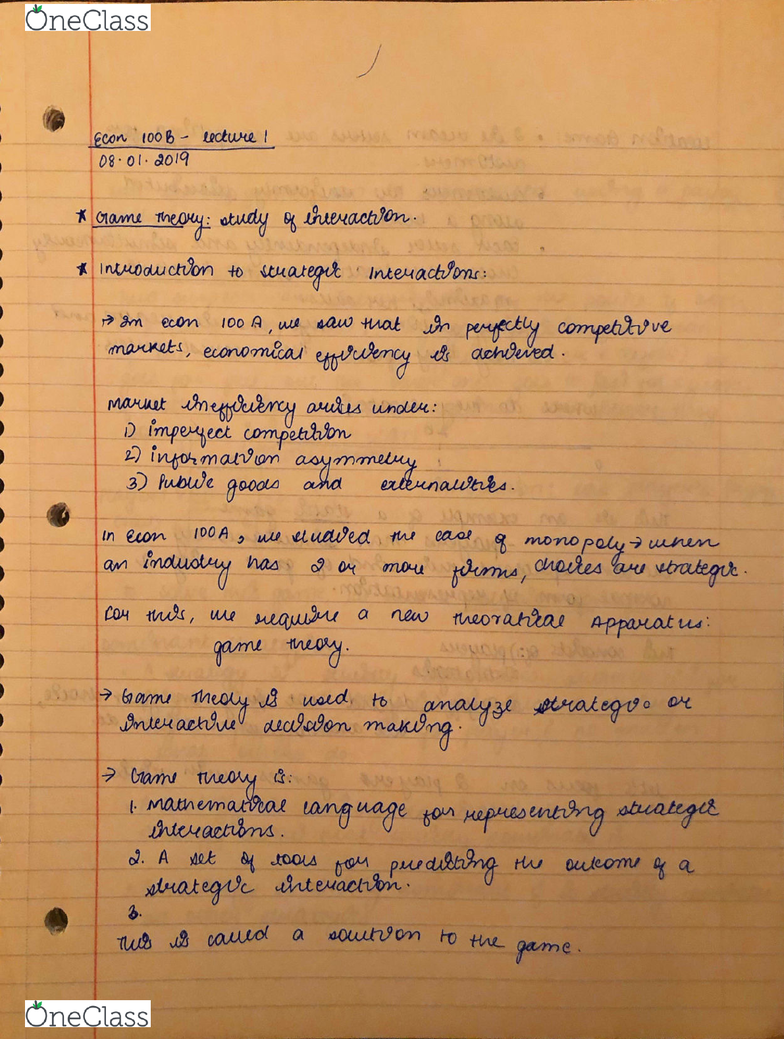 OneClass
Econ 100B - lecture 1
08.01.2019
* Game Theory: study of interaction.
* Introduction to strategic Interactions:
→ In econ 100A, we saw that in perfectly competitive
markets, economical efficiency is achieved.
Market inefficiency arises under:
1) imperfect competition
2) information asymmetry
3) Public goods and externalities.
In Econ 100A, we studied the case of monopoly → when
an industry has 2 or more firms, choices are strategic.
For this, we require a new theoratical Apparatus:
game theory.
→ Game theory is used to analyze strategic or
interactive decision making.
→ Game theory is:
1. Mathematical language for representing strategic
interactions.
2. A set of tools for predicting the outcome of a
strategic interaction.
3.
This is called a solution to the game.
OneClass